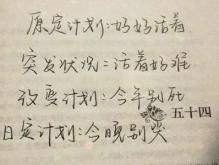 原定计划:好好活着
突发状况:活着好难
改变计划:今年别死
五十四
日定计划:今晚别哭